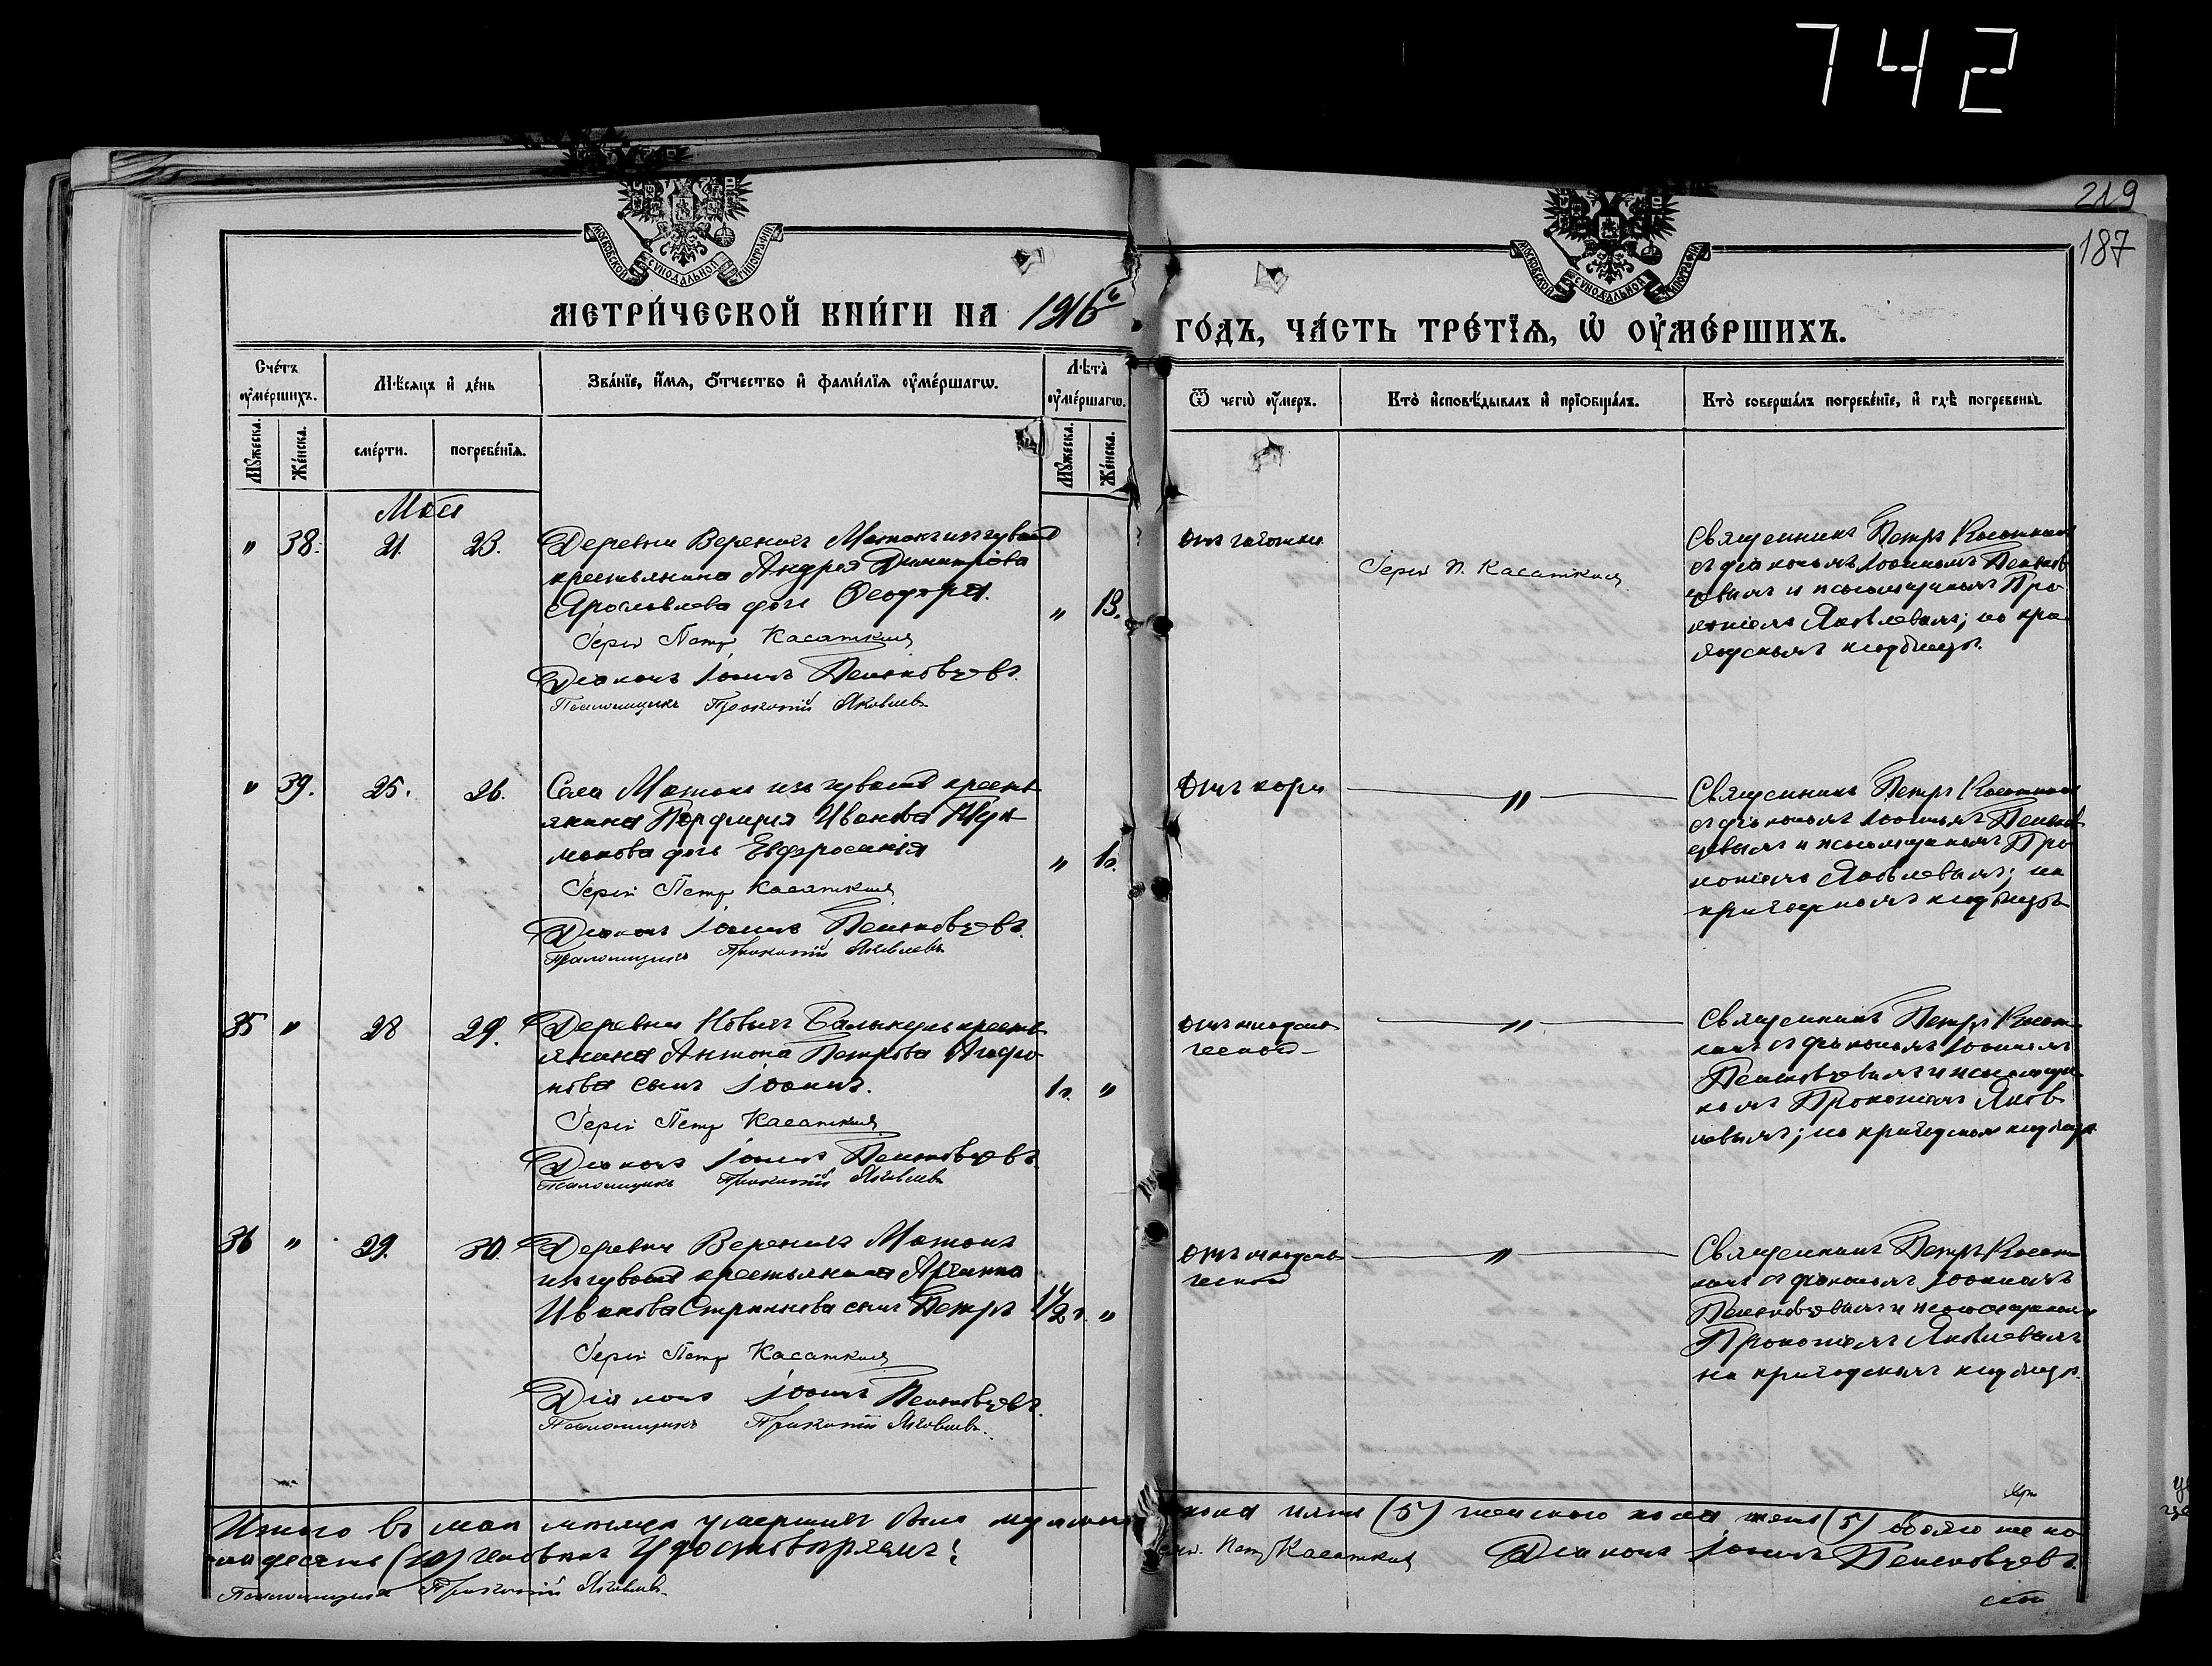 742
219
187
МОСКОВСКОЙ СУНОДАЛЬНОЙ ТИПОГРАФІИ
МОСКОВСКОЙ СУНОДАЛЬНОЙ ТИПОГРАФІИ
МЕТРИ́ЧЕСКОЙ КНИ́ГИ НА 1916 й
ГО́ДЪ, ЧА́СТЬ ТРЕ́ТІѦ, Ѡ҆ ОУ҆МЕ́РШИХЪ.
Сче́тъ оу҆ме́ршихъ.
Мꙋ́жеска.
Же́нска.
Мѣ́сяцъ и҆ де́нь
сме́рти.
погребе́нїѧ.
Зва́нїе, и҆́мѧ, ѻ҆́тчество и҆ фами́лїѧ оу҆ме́ршагѡ.
Лѣ́та оу҆ме́ршагѡ.
Мꙋ́жеска.
Же́нска.
Ѿ чегѡ̀ оу҆́меръ.
Кто̀ и҆сповѣ́дывалъ и҆ прїѻбща́лъ.
Кто̀ соверша́лъ погребе́нїе, и҆ гдѣ̀ погребены̀.
Мая
" 38. 21. 23. Деревни Верхнихъ Матакъ изъ чувашъ
крестьянина Андрея Димитріева
Ярославлева дочь Ѳеодора.
" 13.
Іерей Петръ Касаткинъ
Діаконъ Іоаннъ Пеньковцевъ.
Псаломщикъ Прокопій Яковлевъ
отъ чахотки
Іерей П. Касаткинъ
Священникъ Петръ Касаткинъ
съ діакономъ Іоанномъ Пеньков-
цевымъ и псаломщикомъ Про-
копіемъ Яковлевымъ; на при-
ходскомъ кладбищѣ.
" 39. 25. 26. Села Матакъ изъ чувашъ кресть-
янина Порфирія Иванова
дочь Евфросинія
" 1г.
Іерей Петръ Касаткинъ
Діаконъ Іоаннъ Пеньковцевъ.
Псаломщикъ Прокопій Яковлевъ
отъ кори
"
Священникъ Петръ Касаткинъ
съ діакономъ Іоанномъ Пеньков-
цевымъ и псаломщикомъ Про-
копіемъ Яковлевымъ; на
приходскомъ кладбищѣ
35 " 28 29. Деревни Новыхъ кресть-
янина Антона Петрова Агафо-
нова сынъ Іоаннъ.
1г. "
Іерей Петръ Касаткинъ
Діаконъ Іоаннъ Пеньковцевъ.
Псаломщикъ Прокопій Яковлевъ
отъ младен-
ческой
"
Священникъ Петръ Касат-
кинъ съ діакономъ Іоанномъ
Пеньковцевымъ и псаломщи-
комъ Прокопіемъ Яков-
левымъ; на приходскомъ кладбищѣ
36 " 29. 30. Деревни Верхнихъ Матакъ
изъ чувашъ крестьянина
Иванова сынъ Петръ
1 1/2 г. "
Іерей Петръ Касаткинъ
Діаконъ Іоаннъ Пеньковцевъ.
Псаломщикъ Прокопій Яковлевъ.
отъ младен-
ческой
"
Священникъ Петръ Касат-
кинъ съ діакономъ Іоанномъ
Пеньковцевымъ и псаломщикомъ
Прокопіемъ Яковлевымъ
на приходскомъ кладбищѣ.
Итого въ маѣ мѣсяцѣ умершихъ было мужскаго пола пять (5) женскаго пола пять (5) обоего же по-
ла десять (10) человѣкъ Удостовѣряемъ: Свящ. Петръ Касаткинъ Діаконъ Іоаннъ Пеньковцевъ.
Псаломщикъ Прокопій Яковлевъ.